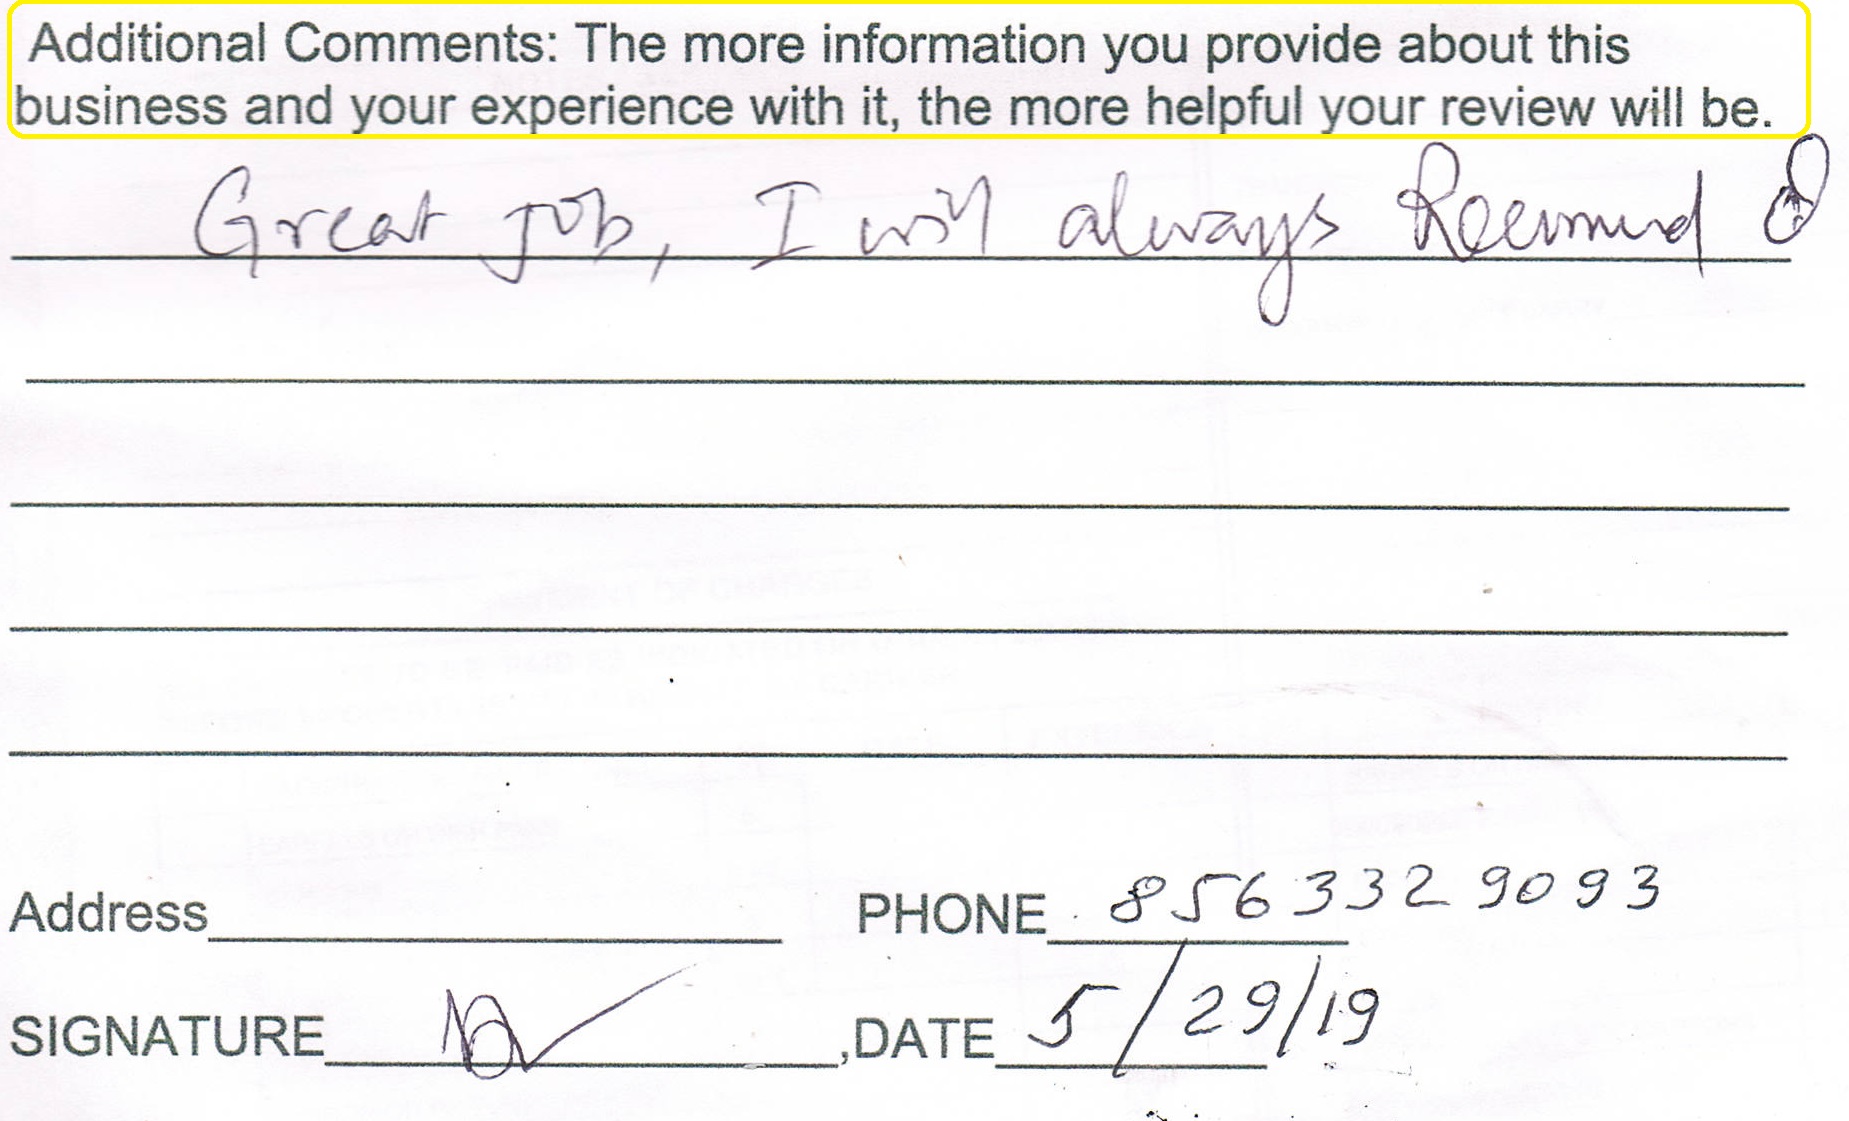 Additional Comments: The more information you provide about this
business and your experience with it, the more helpful your review will be.
Great job, I will always Recommend
Address PHONE 856 332 9093
SIGNATURE ,DATE 5/29/19